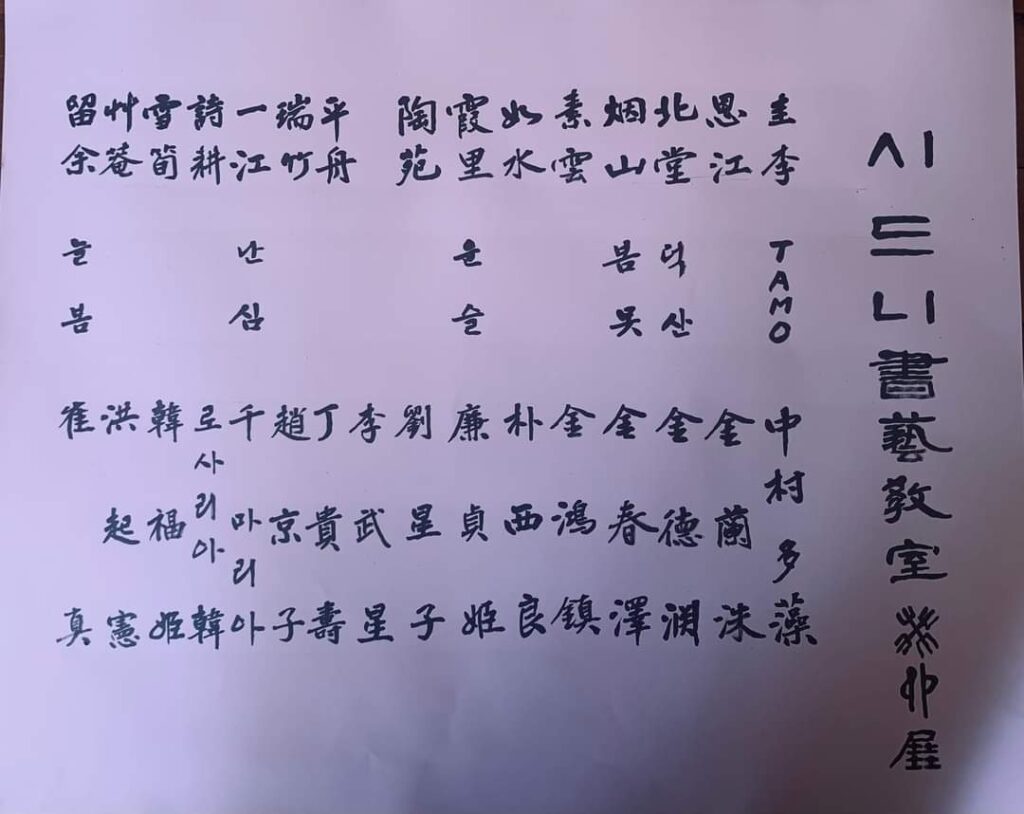 시드니書藝敎室癸卯展
圭李 TAMO 中村多藻
思江 金蘭洙
北堂 덕산 金德潤
烟山 봄 金春澤
素雲 金鴻鎮
如水 朴西良
霞里 윤슬 廉貞姬
陶苑 劉星子
平舟 李武星
瑞竹 丁貴壽
一江 趙京子
난심 千마리아
詩耕 로사리아韓
雪筍 韓福姬
艸菴 洪起憲
留余 늘봄 崔真